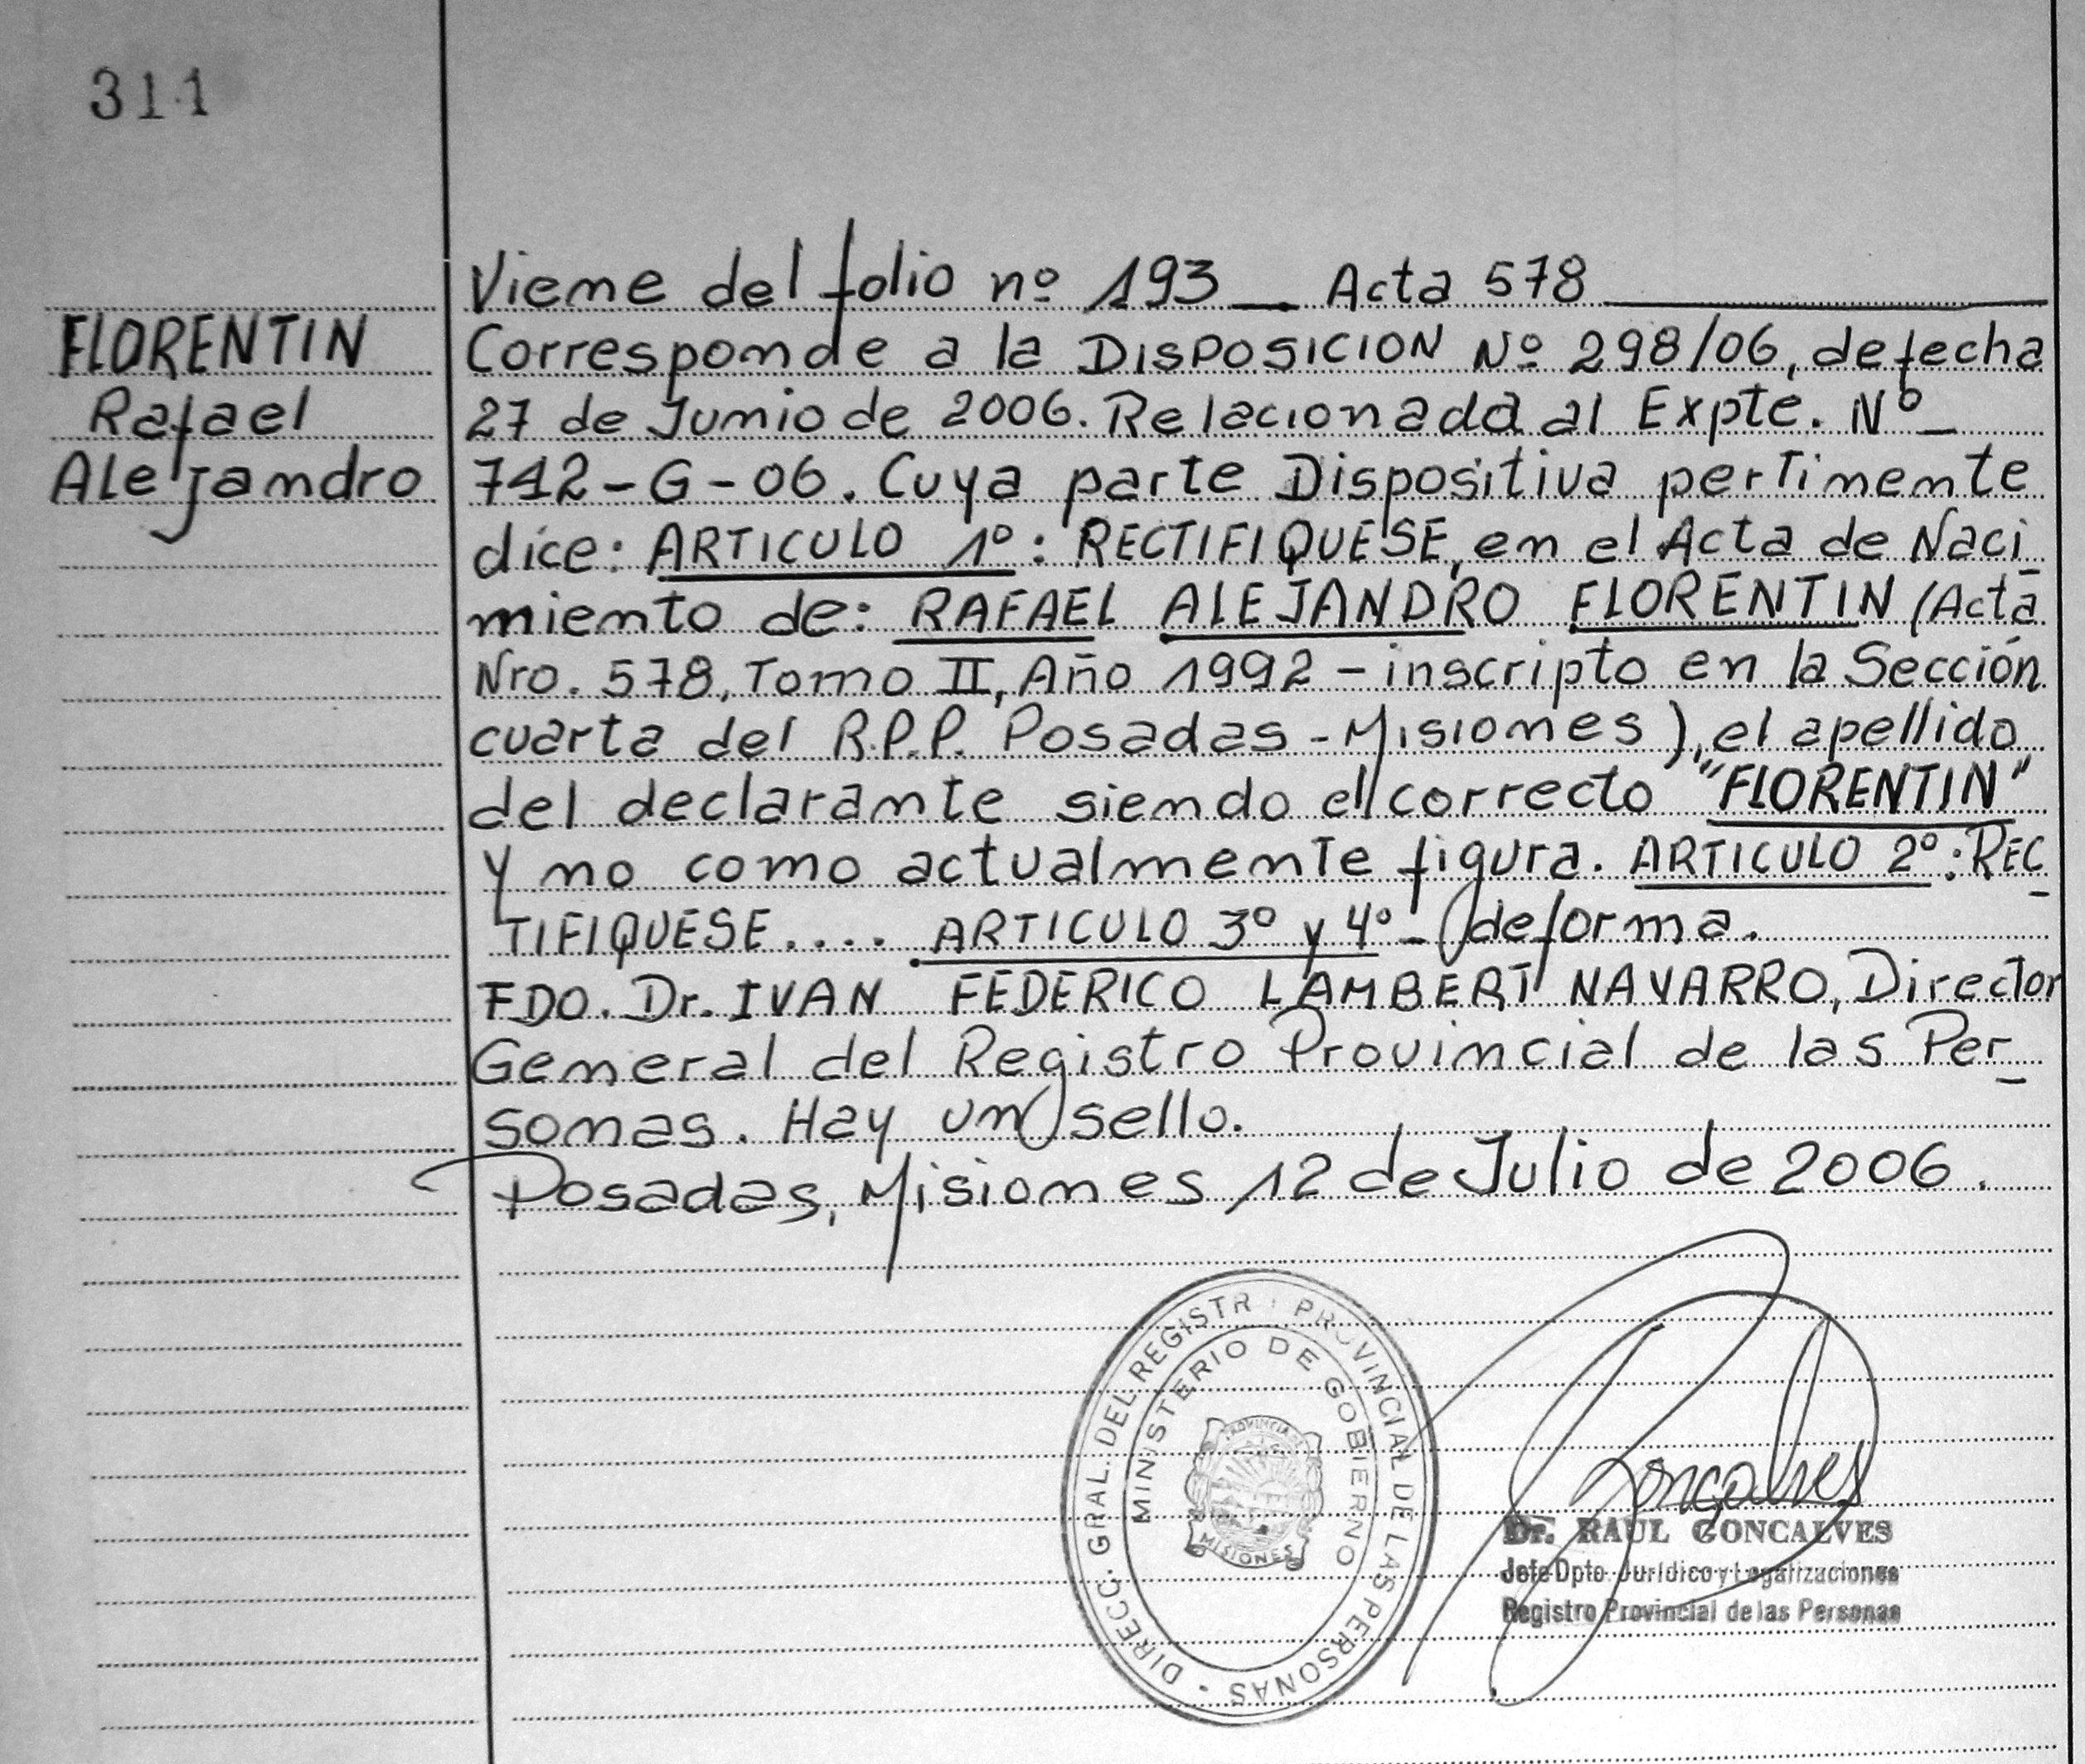 311
FLORENTIN
Rafael
Alejandro
Viene del folio nº 193 _ Acta 578
Corresponde a la DISPOSICION Nº 298/06, de fecha
27 de Junio de 2006. Relacionada al Expte. Nº _
742-G-06. Cuya parte Dispositiva pertinente
dice: ARTICULO 1º: RECTIFIQUESE, en el Acta de Naci_
miento de: RAFAEL ALEJANDRO FLORENTIN (Acta
Nro. 578, Tomo II, Año 1992 - inscripto en la Sección
cuarta del R.P.P. Posadas - Misiones), el apellido
del declarante siendo el correcto "FLORENTIN"
y no como actualmente figura. ARTICULO 2º: REC_
TIFIQUESE.... ARTICULO 3º y 4º - de forma.
FDO. Dr. IVAN FEDERICO LAMBERT NAVARRO, Director
General del Registro Provincial de las Per_
sonas. Hay un sello.
Posadas, Misiones 12 de Julio de 2006.
DIRECC. GRAL. DEL REGISTR PROVINCIAL DE LAS PERSONAS
MINISTERIO DE GOBIERNO
PROVINCIA DE
MISIONES
Goncalves
Dr. RAUL GONCALVES
Jefe Dpto. Jurídico y Legalizaciones
Registro Provincial de las Personas